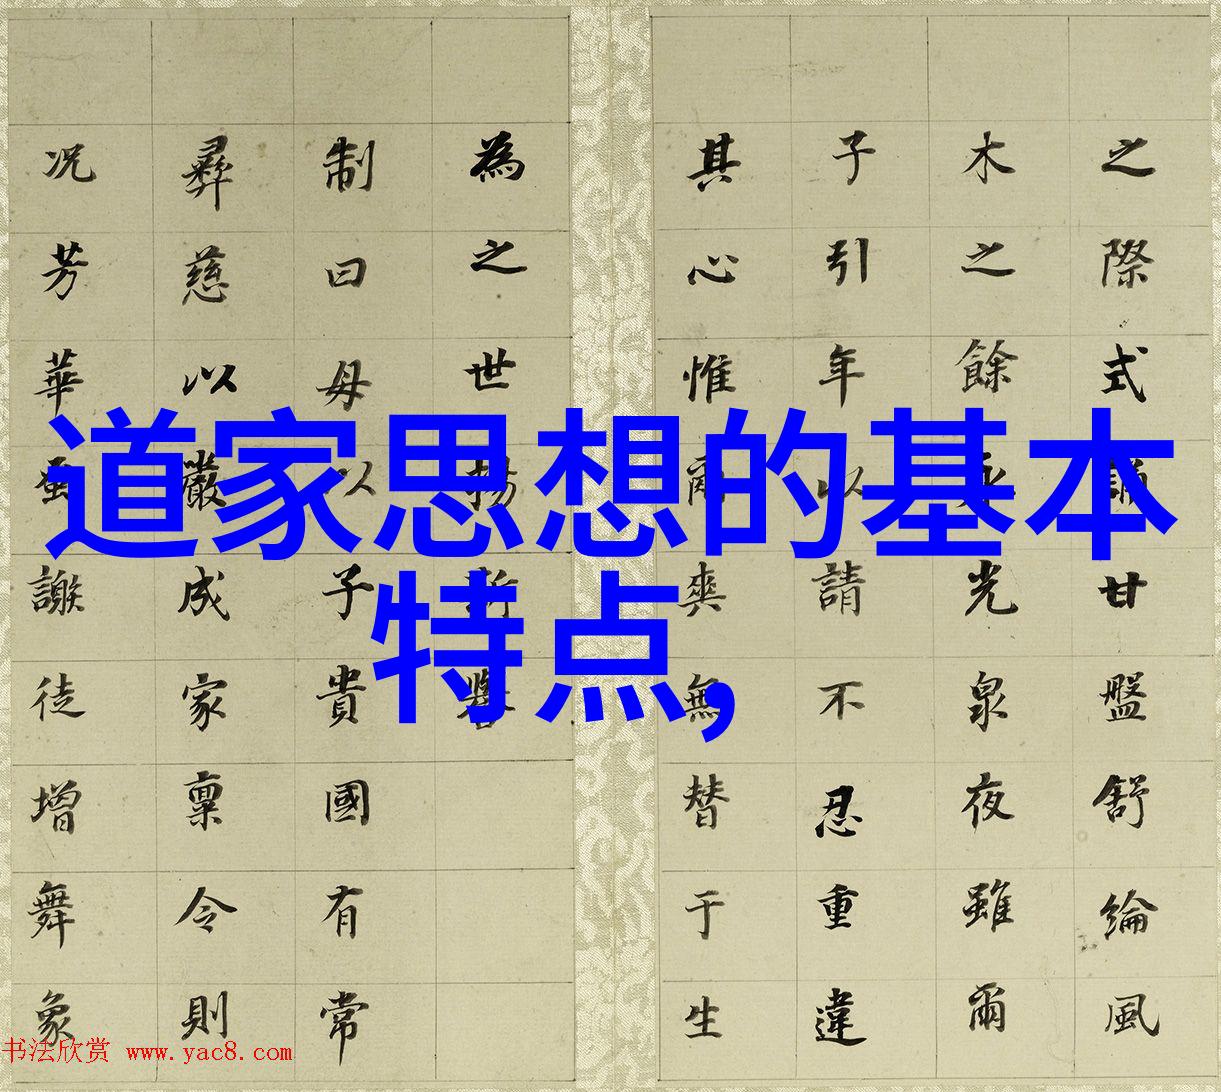 道家思想的基本
特点,
之際式甘盤舒綸風
木之餘光泉夜雖爾
子引年以請不忍重違
其心惟爽無替于生
為之世揚
制曰母以子貴國有常
彝慈以嚴成家稟令則
况芳華謝徒增舞象
书法欣赏 www.yac8.com